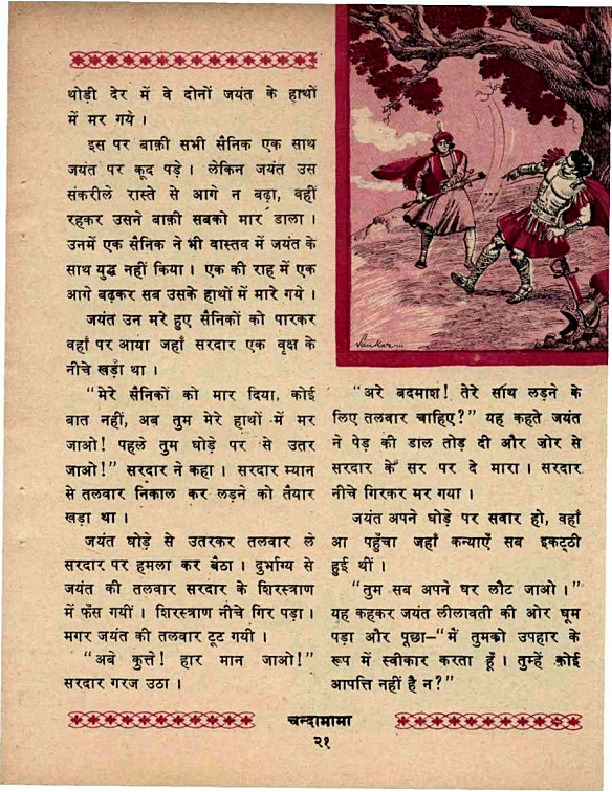 थोड़ी देर में वे दोनों जयंत के हाथों
में मर गये ।
इस पर बाक़ी सभी सैनिक एक साथ
जयंत पर कूद पड़े । लेकिन जयंत उस
संकरीले रास्ते से आगे न बढ़ा, वहीं
रहकर उसने बाक़ी सबको मार डाला ।
उनमें एक सैनिक ने भी वास्तव में जयंत के
साथ युद्ध नहीं किया । एक की राह में एक
आगे बढ़कर सब उसके हाथों में मारे गये ।
जयंत उन मरे हुए सैनिकों को पारकर
वहाँ पर आया जहाँ सरदार एक वृक्ष के
नीचे खड़ा था ।
“मेरे सैनिकों को मार दिया, कोई
बात नहीं, अब तुम मेरे हाथों में मर
जाओ! पहले तुम घोड़े पर से उतर
जाओ!” सरदार ने कहा । सरदार म्यान
से तलवार निकाल कर लड़ने को तैयार
खड़ा था ।
जयंत घोड़े से उतरकर तलवार ले
सरदार पर हमला कर बैठा । दुर्भाग्य से
जयंत की तलवार सरदार के शिरस्त्राण
में फँस गयीं । शिरस्त्राण नीचे गिर पड़ा ।
मगर जयंत की तलवार टूट गयी ।
“अबे कुत्ते! हार मान जाओ!”
सरदार गरज उठा ।
Sankar...
“अरे बदमाश! तेरे साथ लड़ने के
लिए तलवार चाहिए?” यह कहते जयंत
ने पेड़ की डाल तोड़ दी और जोर से
सरदार के सर पर दे मारा । सरदार
नीचे गिरकर मर गया ।
जयंत अपने घोड़े पर सवार हो, वहाँ
आ पहुँचा जहाँ कन्याएँ सब इकट्ठी
हुई थीं ।
“तुम सब अपने घर लौट जाओ ।”
यह कहकर जयंत लीलावती की ओर घूम
पड़ा और पूछा–“में तुमको उपहार के
रूप में स्वीकार करता हूँ । तुम्हें कोई
आपत्ति नहीं है न?”
चन्दामामा
२१